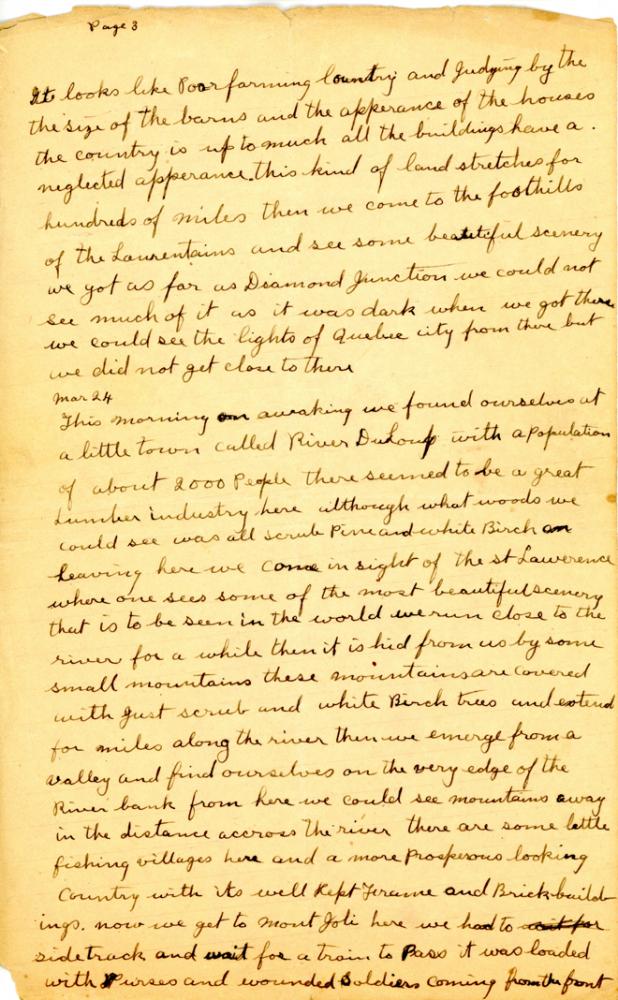 Page 3
It looks like Poor farming Country and Judging by the
the size of the barns and the apperance of the houses
the country is up to much all the buildings have a
neglected apperance. this kind of land stretches for
hundreds of miles then we come to the foothills
of the Laurentains and see some beautiful scenery
we got as far as Diamond Junction we could not
see much of it as it was dark when we got there
we could see the lights of Quebec city from there but
we did not get close to there
Mar 24
This morning on awaking we found ourselves at
a little town called River DuLoup with a Population
of about 2000 People there seemed to be a great
Lumber industry here although what woods we
could see was all scrub Pine and white Birch on
leaving here we come in sight of the st Lawerence
where one sees some of the most beautiful scenery
that is to be seen in the world we run close to the
river for a while then it is hid from us by some
small mountains these mountains are covered
with Just scrub and white Birch trees and extend
for miles along the river then we emerge from a
valley and find ourselves on the very edge of the
River bank from here we could see mountains away
in the distance accross the river there are some little
fishing villages here and a more Prosperous looking
Country with its well Kept Frame and Brick build-
ings. now we get to Mont Joli here we had to wait for
sidetrack and wait for a train to Pass it was loaded
with Nurses and wounded Soldiers coming from the front